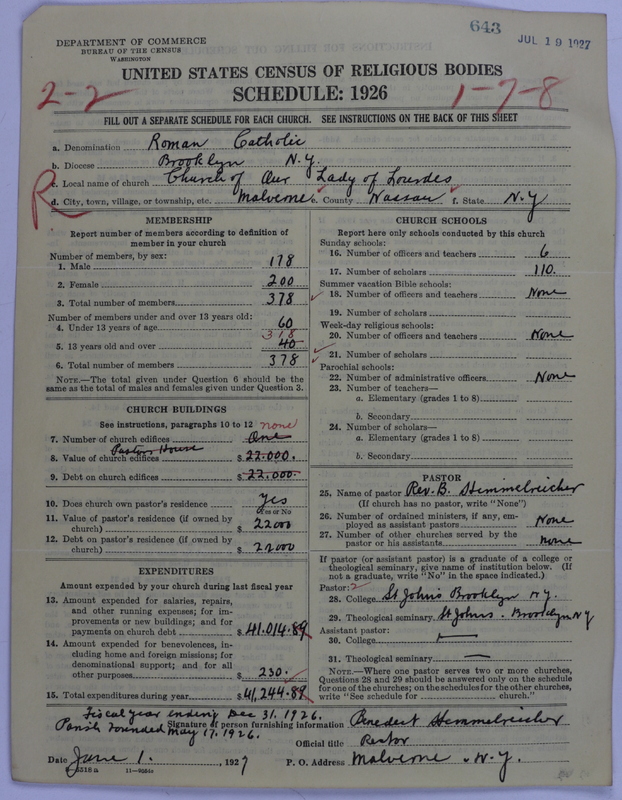 643
JUL 19 1927
DEPARTMENT OF COMMERCE
BUREAU OF THE CENSUS
WASHINGTON
UNITED STATES CENSUS OF RELIGIOUS BODIES
SCHEDULE: 1926
2-2
1-7-8
FILL OUT A SEPARATE SCHEDULE FOR EACH CHURCH. SEE INSTRUCTIONS ON THE BACK OF THIS SHEET
a. Denomination Roman Catholic
b. Diocese Brooklyn N.Y.
c. Local name of church Church of Our Lady of Lourdes
R
d. City, town, village, or township, etc. Malverne e. County Nassau f. State N.Y
MEMBERSHIP
Report number of members according to definition of
member in your church
Number of members, by sex:
1. Male 178
2. Female 200
3. Total number of members 378
Number of members under and over 13 years old:
4. Under 13 years of age 60
318
5. 13 years old and over 40
6. Total number of members 378
NOTE.—The total given under Question 6 should be the
same as the total of males and females given under Question 3.
CHURCH BUILDINGS
See instructions, paragraphs 10 to 12 none
7. Number of church edifices One
Pastors House
8. Value of church edifices $ 22.000.
9. Debt on church edifices $ 22.000.
10. Does church own pastor's residence Yes
Yes or No
11. Value of pastor's residence (if owned by
church) $ 22000
12. Debt on pastor's residence (if owned by
church) $ 22000
EXPENDITURES
Amount expended by your church during last fiscal year
13. Amount expended for salaries, repairs,
and other running expenses; for im-
provements or new buildings; and for
payments on church debt $ 41,014.89
14. Amount expended for benevolences, in-
cluding home and foreign missions; for
denominational support; and for all
other purposes $ 230.
15. Total expenditures during year $ 41,244.89
CHURCH SCHOOLS
Report here only schools conducted by this church
Sunday schools:
16. Number of officers and teachers 6
17. Number of scholars 110.
Summer vacation Bible schools:
18. Number of officers and teachers None
19. Number of scholars
Week-day religious schools:
20. Number of officers and teachers None
21. Number of scholars
Parochial schools:
22. Number of administrative officers None
23. Number of teachers—
a. Elementary (grades 1 to 8)
b. Secondary
24. Number of scholars—
a. Elementary (grades 1 to 8)
b. Secondary
PASTOR
25. Name of pastor Rev. B. Hemmelreicher
(If church has no pastor, write "None")
26. Number of ordained ministers, if any, em-
ployed as assistant pastors None
27. Number of other churches served by the
pastor or his assistants None
If pastor (or assistant pastor) is a graduate of a college or
theological seminary, give name of institution below. (If
not a graduate, write "No" in the space indicated.)
Pastor: 2
28. College St Johns Brooklyn N.Y.
29. Theological seminary St Johns. Brooklyn N.Y
Assistant pastor:
30. College
31. Theological seminary
NOTE.—Where one pastor serves two or more churches,
Questions 28 and 29 should be answered only on the schedule
for one of the churches; on the schedules for the other churches,
write "See schedule for church."
Fiscal year ending Dec 31. 1926.
Parish rounded May 17. 1926.
Signature of person furnishing information Benedict Hemmelreicher
Official title Rector
Date June 1. , 1927 P. O. Address Malverne, N.Y.
11—9554